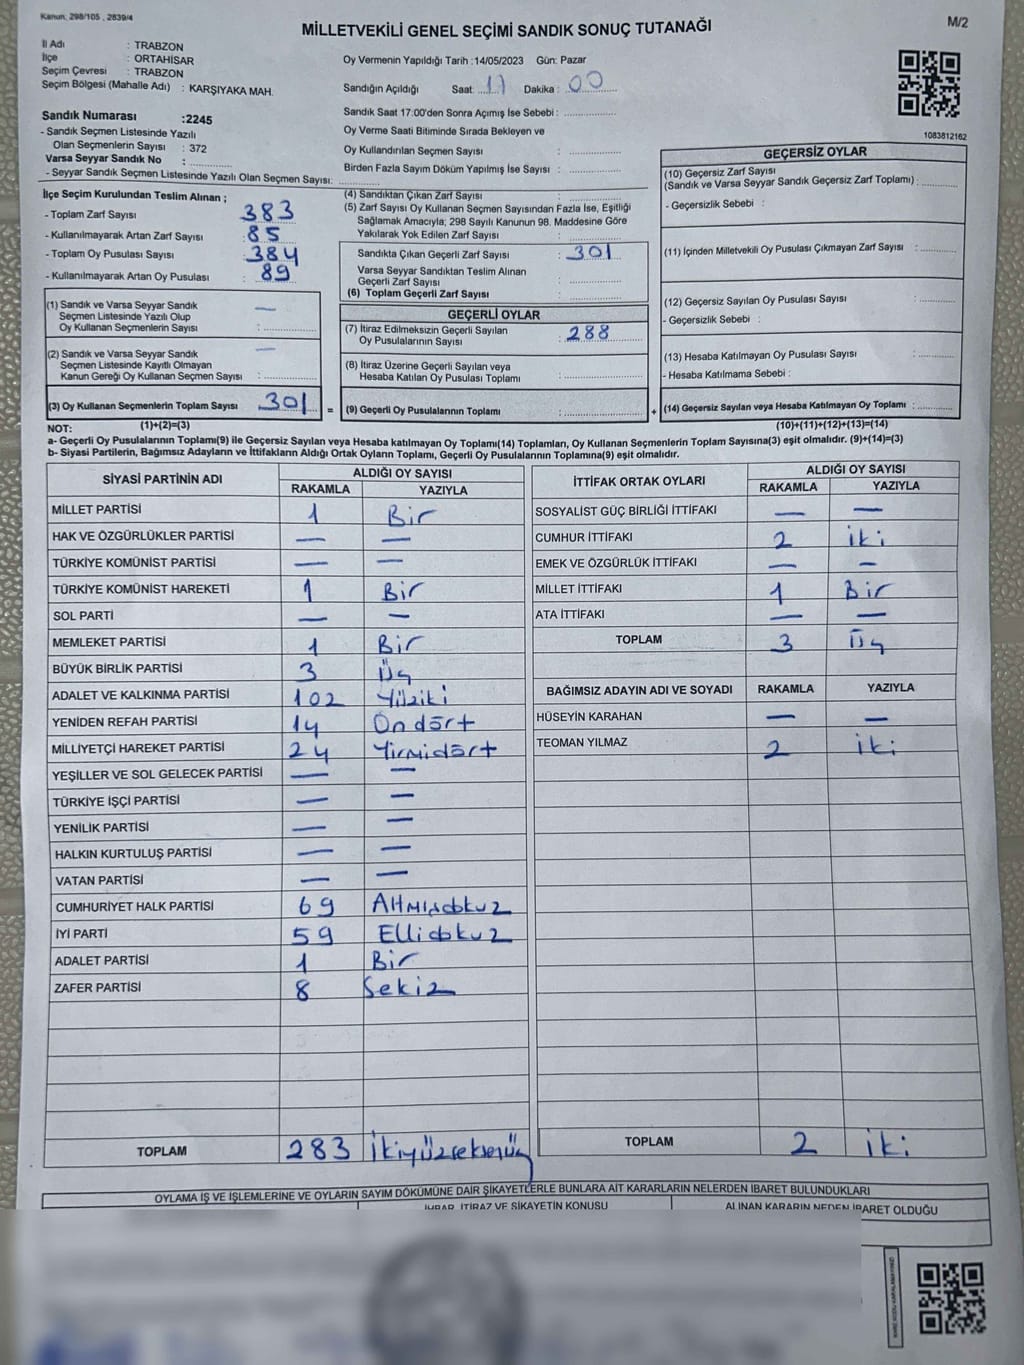 Kanun; 298/105 , 2839/4
MİLLETVEKİLİ GENEL SEÇİMİ SANDIK SONUÇ TUTANAĞI
M/2
İl Adı : TRABZON
İlçe : ORTAHİSAR
Seçim Çevresi : TRABZON
Seçim Bölgesi (Mahalle Adı) : KARŞIYAKA MAH.
Oy Vermenin Yapıldığı Tarih :14/05/2023 Gün: Pazar
Sandığın Açıldığı Saat: 17 Dakika : 00
Sandık Saat 17.00'den Sonra Açımış İse Sebebi :
Oy Verme Saati Bitiminde Sırada Bekleyen ve
Oy Kullandırılan Seçmen Sayısı :
Birden Fazla Sayım Döküm Yapılmış İse Sayısı :
1083812162
Sandık Numarası :2245
- Sandık Seçmen Listesinde Yazılı
Olan Seçmenlerin Sayısı : 372
Varsa Seyyar Sandık No :
- Seyyar Sandık Seçmen Listesinde Yazılı Olan Seçmen Sayısı:
İlçe Seçim Kurulundan Teslim Alınan ;
- Toplam Zarf Sayısı : 383
- Kullanılmayarak Artan Zarf Sayısı : 85
- Toplam Oy Pusulası Sayısı : 384
- Kullanılmayarak Artan Oy Pusulası : 89
(1) Sandık ve Varsa Seyyar Sandık
Seçmen Listesinde Yazılı Olup
Oy Kullanan Seçmenlerin Sayısı : —
(2) Sandık ve Varsa Seyyar Sandık
Seçmen Listesinde Kayıtlı Olmayan
Kanun Gereği Oy Kullanan Seçmen Sayısı : —
(3) Oy Kullanan Seçmenlerin Toplam Sayısı : 301 =
(4) Sandıktan Çıkan Zarf Sayısı :
(5) Zarf Sayısı Oy Kullanan Seçmen Sayısından Fazla İse, Eşitliği
Sağlamak Amacıyla; 298 Sayılı Kanunun 98. Maddesine Göre
Yakılarak Yok Edilen Zarf Sayısı :
Sandıkta Çıkan Geçerli Zarf Sayısı : 301
Varsa Seyyar Sandıktan Teslim Alınan
Geçerli Zarf Sayısı :
(6) Toplam Geçerli Zarf Sayısı :
GEÇERLİ OYLAR
(7) İtiraz Edilmeksizin Geçerli Sayılan
Oy Pusulalarının Sayısı : 288
(8) İtiraz Üzerine Geçerli Sayılan veya
Hesaba Katılan Oy Pusulası Toplamı :
(9) Geçerli Oy Pusulalarının Toplamı : +
GEÇERSİZ OYLAR
(10) Geçersiz Zarf Sayısı
(Sandık ve Varsa Seyyar Sandık Geçersiz Zarf Toplamı) :
- Geçersizlik Sebebi :
(11) İçinden Milletvekili Oy Pusulası Çıkmayan Zarf Sayısı :
(12) Geçersiz Sayılan Oy Pusulası Sayısı :
- Geçersizlik Sebebi :
(13) Hesaba Katılmayan Oy Pusulası Sayısı :
- Hesaba Katılmama Sebebi :
(14) Geçersiz Sayılan veya Hesaba Katılmayan Oy Toplamı :
NOT: (1)+(2)=(3) (10)+(11)+(12)+(13)=(14)
a- Geçerli Oy Pusulalarının Toplamı(9) ile Geçersiz Sayılan veya Hesaba katılmayan Oy Toplamı(14) Toplamları, Oy Kullanan Seçmenlerin Toplam Sayısına(3) eşit olmalıdır. (9)+(14)=(3)
b- Siyasi Partilerin, Bağımsız Adayların ve İttifakların Aldığı Ortak Oyların Toplamı, Geçerli Oy Pusulalarının Toplamına(9) eşit olmalıdır.
SİYASİ PARTİNİN ADI ALDIĞI OY SAYISI
RAKAMLA YAZIYLA
MİLLET PARTİSİ 1 Bir
HAK VE ÖZGÜRLÜKLER PARTİSİ — —
TÜRKİYE KOMÜNİST PARTİSİ — —
TÜRKİYE KOMÜNİST HAREKETİ 1 Bir
SOL PARTİ — —
MEMLEKET PARTİSİ 1 Bir
BÜYÜK BİRLİK PARTİSİ 3 Üç
ADALET VE KALKINMA PARTİSİ 102 Yüziki
YENİDEN REFAH PARTİSİ 14 Ondört
MİLLİYETÇİ HAREKET PARTİSİ 24 Yirmidört
YEŞİLLER VE SOL GELECEK PARTİSİ — —
TÜRKİYE İŞÇİ PARTİSİ — —
YENİLİK PARTİSİ — —
HALKIN KURTULUŞ PARTİSİ — —
VATAN PARTİSİ — —
CUMHURİYET HALK PARTİSİ 69 Altmışdokuz
İYİ PARTİ 59 Ellidokuz
ADALET PARTİSİ 1 Bir
ZAFER PARTİSİ 8 Sekiz
TOPLAM 283 İkiyüzseksenüç
İTTİFAK ORTAK OYLARI ALDIĞI OY SAYISI
RAKAMLA YAZIYLA
SOSYALİST GÜÇ BİRLİĞİ İTTİFAKI — —
CUMHUR İTTİFAKI 2 iki
EMEK VE ÖZGÜRLÜK İTTİFAKI — —
MİLLET İTTİFAKI 1 Bir
ATA İTTİFAKI — —
TOPLAM 3 Üç
BAĞIMSIZ ADAYIN ADI VE SOYADI RAKAMLA YAZIYLA
HÜSEYİN KARAHAN — —
TEOMAN YILMAZ 2 iki
TOPLAM 2 iki
OYLAMA İŞ VE İŞLEMLERİNE VE OYLARIN SAYIM DÖKÜMÜNE DAİR ŞİKAYETLERLE BUNLARA AİT KARARLARIN NELERDEN İBARET BULUNDUKLARI
İHBAR, İTİRAZ VE ŞİKAYETİN KONUSU ALINAN KARARIN NEDEN İBARET OLDUĞU